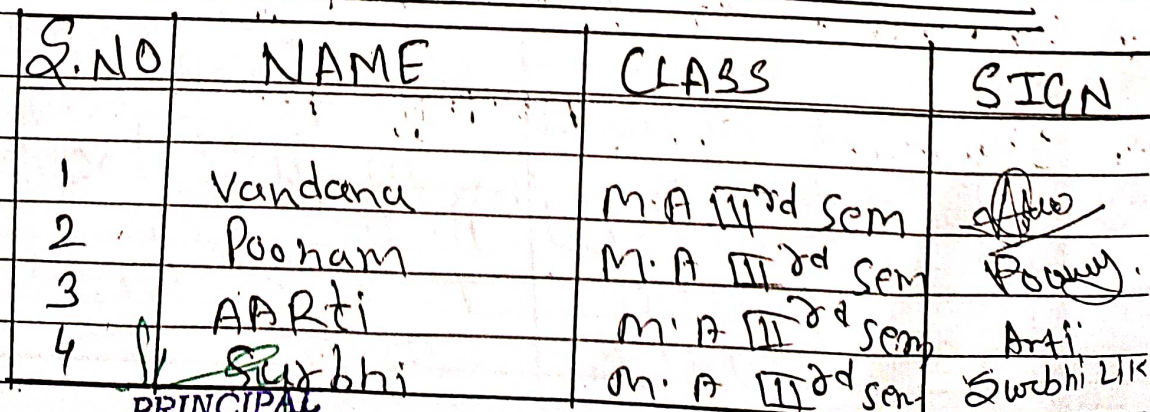 S.NO NAME CLASS SIGN
1 Vandana M.A IIIrd Sem
2 Poonam M.A IIIrd Sem
3 AARti M.A IIIrd Sem Arti
4 Surbhi M.A IIIrd Sem Surbhi
PRINCIPAL